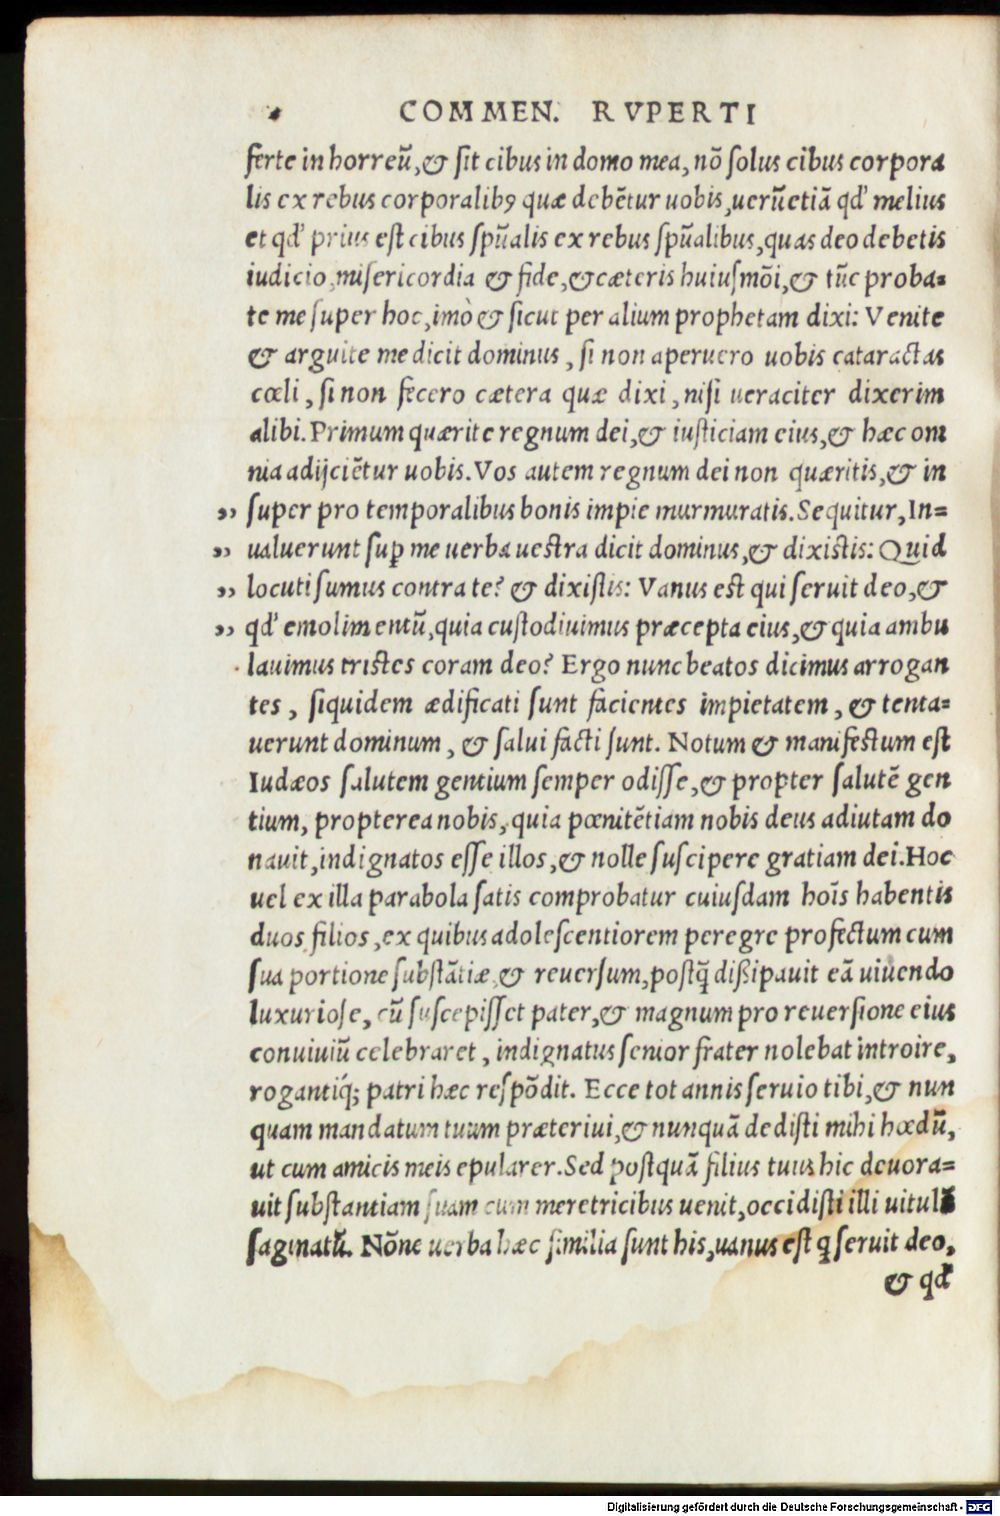 COMMEN. RVPERTI
ferte in horreũ, & sit cibus in domo mea, nõ solus cibus corpora
lis ex rebus corporalibꝰ quæ debẽtur uobis, uerũetiã qđ melius
et qđ prius est cibus spũalis ex rebus spũalibus, quas deo debetis
iudicio, misericordia & fide, & cæteris huiusmõi, & tũc proba=
te me super hoc, imò & sicut per alium prophetam dixi: Venite
& arguite me dicit dominus, si non aperuero uobis cataractas
cœli, si non fecero cætera quæ dixi, nisi ueraciter dixerim
alibi. Primum quærite regnum dei, & iusticiam eius, & hæc om
nia adijciẽtur uobis. Vos autem regnum dei non quæritis, & in
„ super pro temporalibus bonis impie murmuratis. Sequitur, In=
„ ualuerunt suꝑ me uerba uestra dicit dominus, & dixistis: Quid
„ locuti sumus contra te? & dixistis: Vanus est qui seruit deo, &
„ qđ emolimentũ, quia custodiuimus præcepta eius, & quia ambu
lauimus tristes coram deo? Ergo nunc beatos dicimus arrogan
tes, siquidem ædificati sunt facientes impietatem, & tenta=
uerunt dominum, & salui facti sunt. Notum & manifestum est
Iudæos salutem gentium semper odisse, & propter salutẽ gen
tium, propterea nobis, quia pœnitẽtiam nobis deus adiutam do
nauit, indignatos esse illos, & nolle suscipere gratiam dei. Hoc
uel ex illa parabola satis comprobatur cuiusdam hoĩs habentis
duos filios, ex quibus adolescentiorem peregre profectum cum
sua portione substãtiæ, & reuersum, postq̃ dißipauit eã uiuendo
luxuriose, cũ suscepisset pater, & magnum pro reuersione eius
conuiuiũ celebraret, indignatus senior frater nolebat introire,
rogantiq́; patri hæc respõdit. Ecce tot annis seruio tibi, & nun
quam mandatum tuum præteriui, & nunquã dedisti mihi hœdũ,
ut cum amicis meis epularer. Sed postquã filius tuus hic deuora=
uit substantiam suam cum meretricibus uenit, occidisti illi uitulũ
saginatũ. Nõne uerba hæc similia sunt his, uanus est q̃ seruit deo,
& qđ
Digitalisierung gefördert durch die Deutsche Forschungsgemeinschaft - DFG